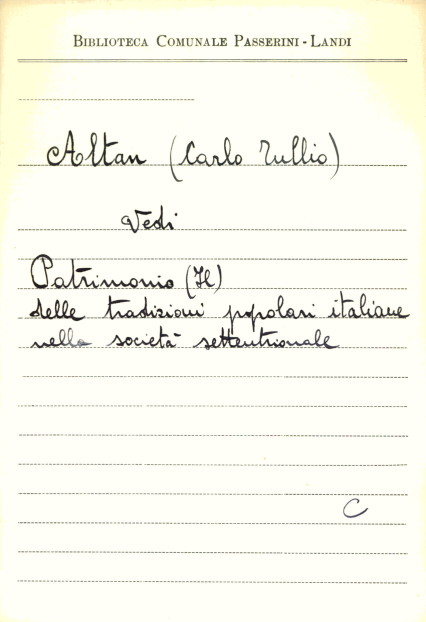 BIBLIOTECA COMUNALE PASSERINI - LANDI
Altan (Carlo Tullio)
Vedi
Patrimonio (Il)
delle tradizioni popolari italiane
nella società settentrionale
C